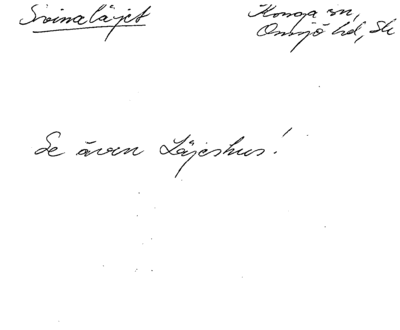 Svinaläjet
Konga sn,
Onsjö hd, Sk
Se även Läjeshus!